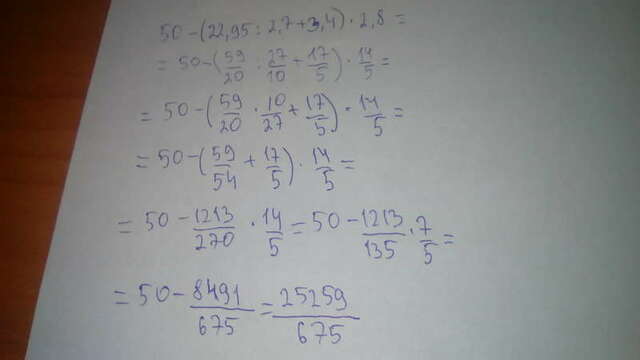 50-(22,95:2,7+3,4)·2,8=
=50-(59/20:27/10+17/5)·14/5=
=50-(59/20·10/27+17/5)·14/5=
=50-(59/54+17/5)·14/5=
=50-1213/270·14/5=50-1213/135·7/5=
=50-8491/675=25259/675